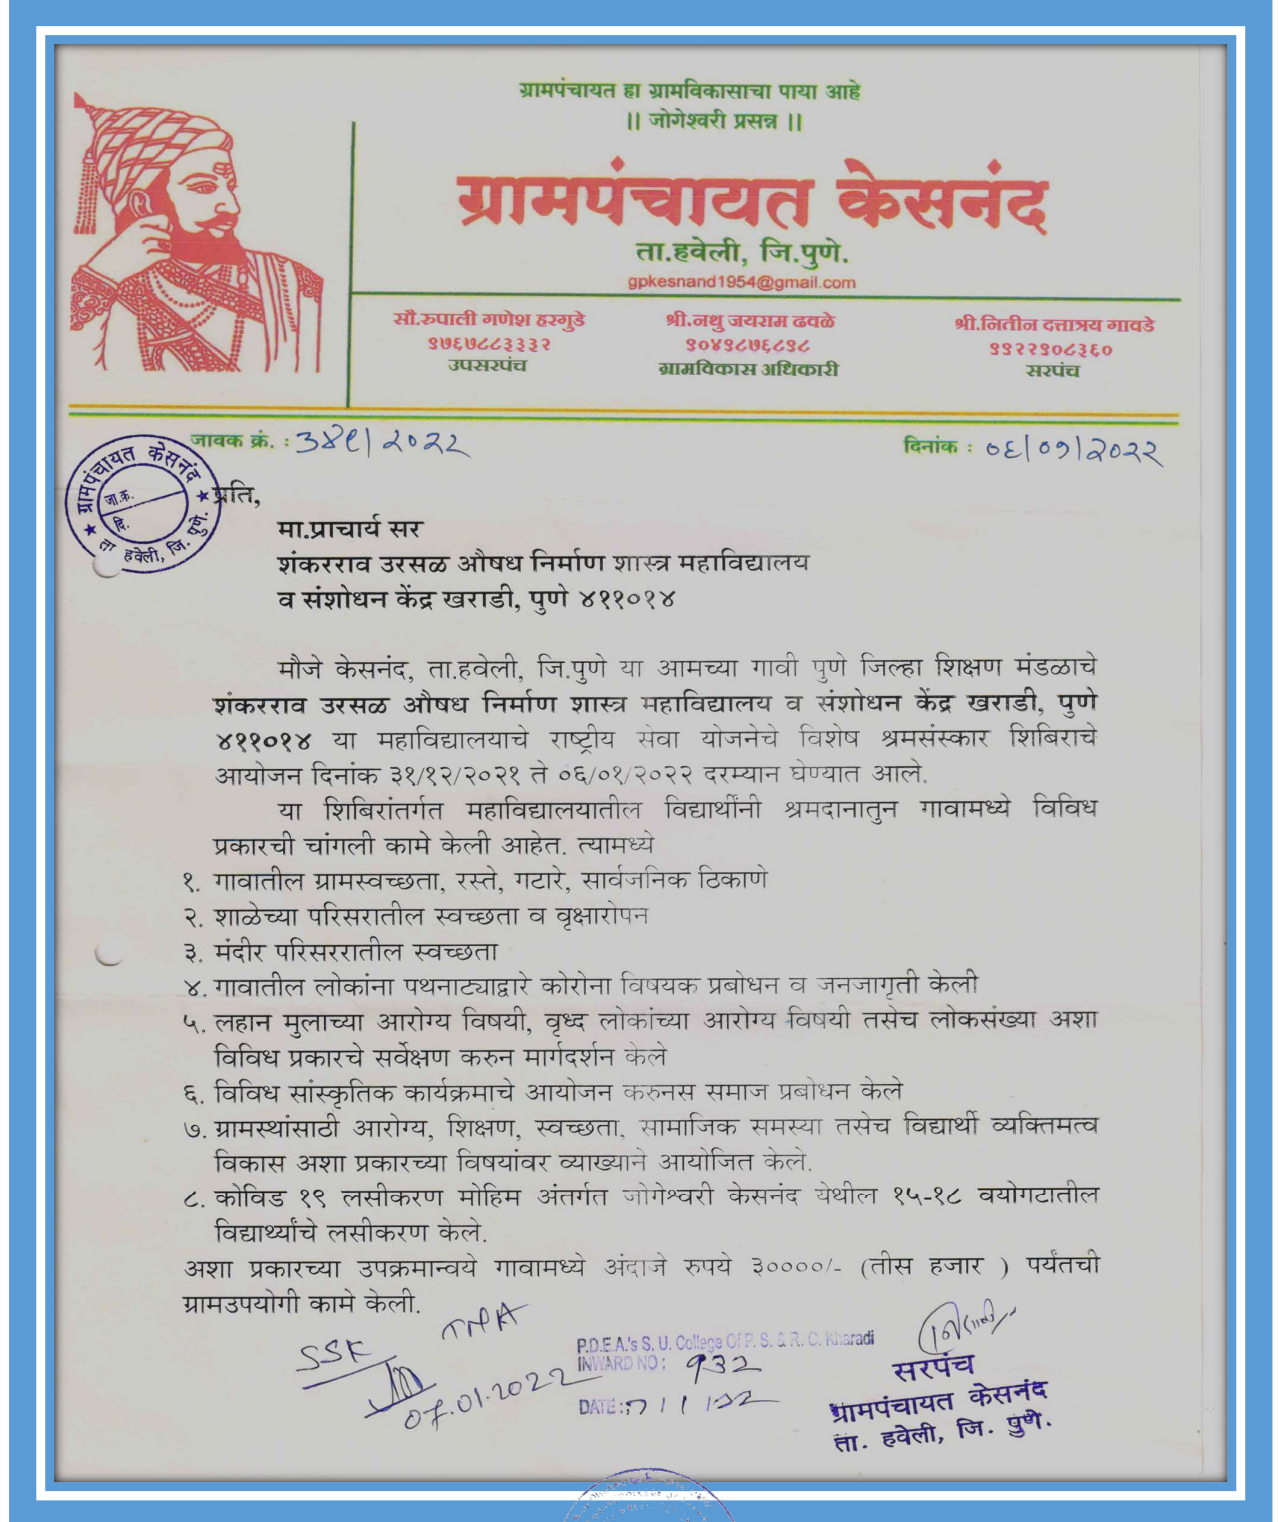 ग्रामपंचायत हा ग्रामविकासाचा पाया आहे
|| जोगेश्वरी प्रसन्न ||
ग्रामपंचायत केसनंद
ता.हवेली, जि.पुणे.
gpkesnand1954@gmail.com
सौ.रुपाली गणेश हरगुडे
९७६७८८३३३२
उपसरपंच
श्री.नथु जयराम ढवळे
९०४९८७६८९८
ग्रामविकास अधिकारी
श्री.नितीन दत्तात्रय गावडे
९९२२९०८३६०
सरपंच
जावक क्रं. : ३४९/२०२२
दिनांक : ०६/०१/२०२२
ग्रामपंचायत केसनंद
जा.क्र.
दि.
ता हवेली, जि. पुणे.
प्रति,
मा.प्राचार्य सर
शंकरराव उरसळ औषध निर्माण शास्त्र महाविद्यालय
व संशोधन केंद्र खराडी, पुणे ४११०१४
मौजे केसनंद, ता.हवेली, जि.पुणे या आमच्या गावी पुणे जिल्हा शिक्षण मंडळाचे
शंकरराव उरसळ औषध निर्माण शास्त्र महाविद्यालय व संशोधन केंद्र खराडी, पुणे
४११०१४ या महाविद्यालयाचे राष्ट्रीय सेवा योजनेचे विशेष श्रमसंस्कार शिबिराचे
आयोजन दिनांक ३१/१२/२०२१ ते ०६/०१/२०२२ दरम्यान घेण्यात आले.
या शिबिरांतर्गत महाविद्यालयातील विद्यार्थींनी श्रमदानातुन गावामध्ये विविध
प्रकारची चांगली कामे केली आहेत. त्यामध्ये
१. गावातील ग्रामस्वच्छता, रस्ते, गटारे, सार्वजनिक ठिकाणे
२. शाळेच्या परिसरातील स्वच्छता व वृक्षारोपन
३. मंदीर परिसररातील स्वच्छता
४. गावातील लोकांना पथनाट्याद्वारे कोरोना विषयक प्रबोधन व जनजागृती केली
५. लहान मुलाच्या आरोग्य विषयी, वृध्द लोकांच्या आरोग्य विषयी तसेच लोकसंख्या अशा
विविध प्रकारचे सर्वेक्षण करुन मार्गदर्शन केले
६. विविध सांस्कृतिक कार्यक्रमाचे आयोजन करुनस समाज प्रबोधन केले
७. ग्रामस्थांसाठी आरोग्य, शिक्षण, स्वच्छता, सामाजिक समस्या तसेच विद्यार्थी व्यक्तिमत्व
विकास अशा प्रकारच्या विषयांवर व्याख्याने आयोजित केले.
८. कोविड १९ लसीकरण मोहिम अंतर्गत जोगेश्वरी केसनंद येथील १५-१८ वयोगटातील
विद्यार्थ्यांचे लसीकरण केले.
अशा प्रकारच्या उपक्रमान्वये गावामध्ये अंदाजे रुपये ३००००/- (तीस हजार ) पर्यंतची
ग्रामउपयोगी कामे केली.
SSK
07.01.2022
P.D.E.A.'s S. U. College Of P. S. & R. C. Kharadi
INWARD NO : 932
DATE :
सरपंच
ग्रामपंचायत केसनंद
ता. हवेली, जि. पुणे.